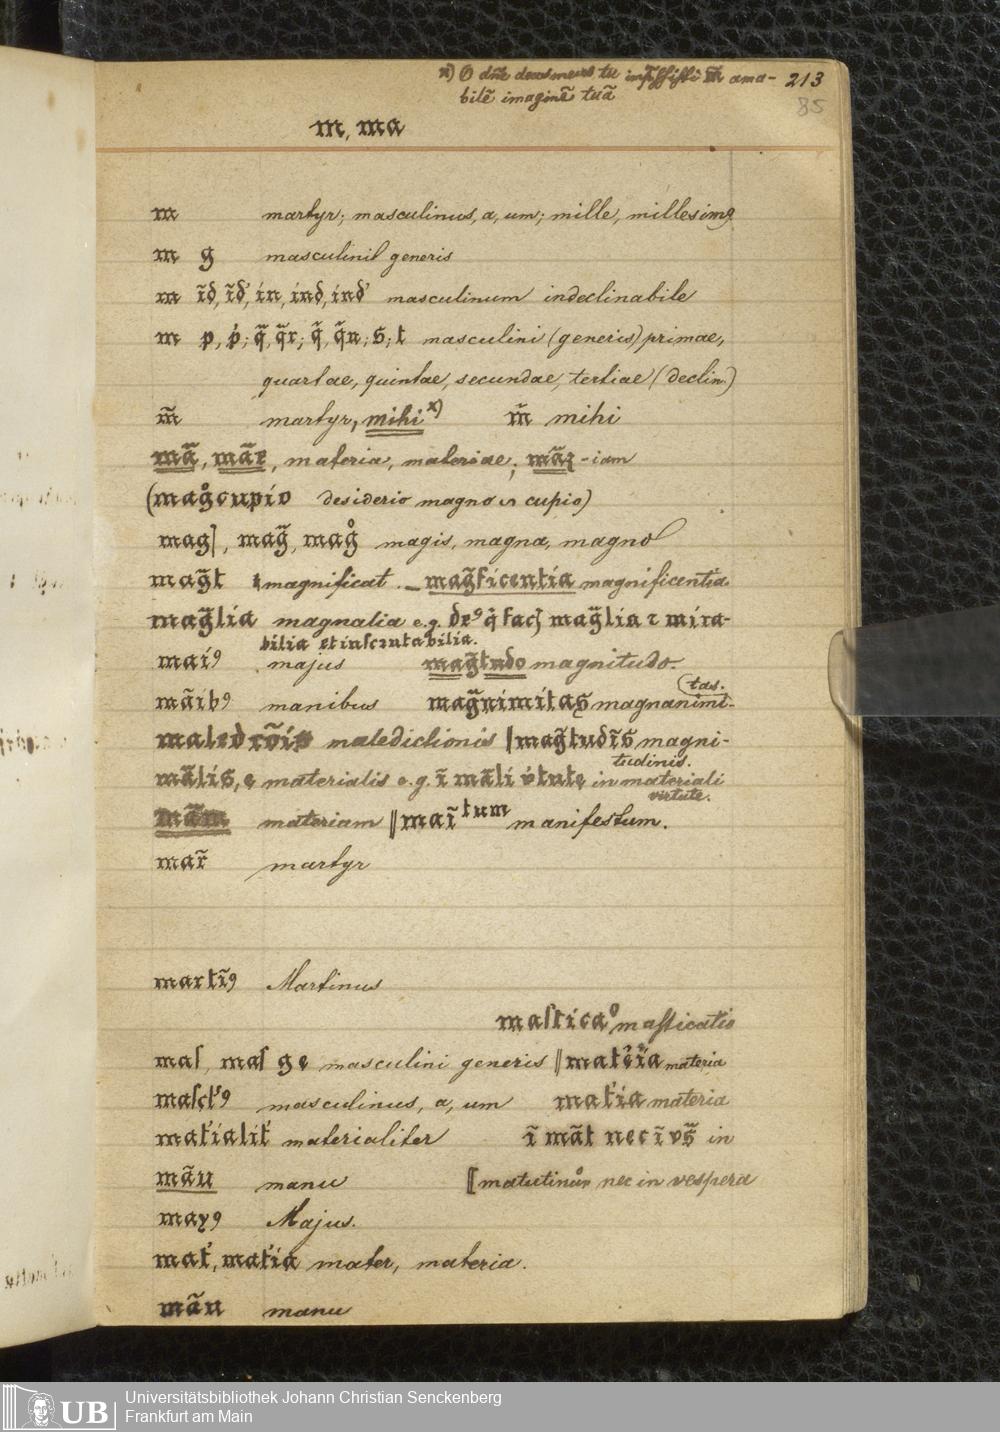 x) O dñe deus meus tu m̃ ama- 213
bilẽ imaginẽ tuã 85
m, ma
m martyr; masculinus, a, um; mille, millesimꝰ
m g masculini generis
m ĩd, ĩd', in, ind, ind' masculinum indeclinabile
m p, masculini (generis) primae,
quartae, quintae, secundae, tertiae (declin.)
m̃ martyr, mihi x) m̃ mihi
mã, mãe, materia, materiae; mãꝫ -iam
(magͦcupio desiderio magno cupio)
mag], mag̃, magͦ magis, magna, magno
mag̃t magnificat. – mag̃ficentia magnificentia
mag̃lia magnalia e.g. deꝰ mag̃lia ⁊ mira-
bilia et inscrutabilia.
maiꝰ majus mag̃tudo magnitudo.
mãibꝰ manibus mag̃nimitas magnanimi-
(tas.
maledcõis maledictionis | mag̃tudĩs magni-
tudinis.
mãlis, e materialis e.g. ĩ mãli v̓tute in materiali
virtute.
mãm materiam || maĩtum manifestum.
mar̃ martyr
martĩꝰ Martinus
maſticaͦ maſticatio
maſ, maſ ge masculini generis || matẽia materia
maſcl'ꝰ masculinus, a, um mat'ia materia
mat'ialit' materialiter ĩ mãt nec ĩ vs̃ in
mãu manu [matutin nec in vespera
mayꝰ Majus.
mat', mat'ia mater, materia.
mãu manu
UB Universitätsbibliothek Johann Christian Senckenberg
Frankfurt am Main